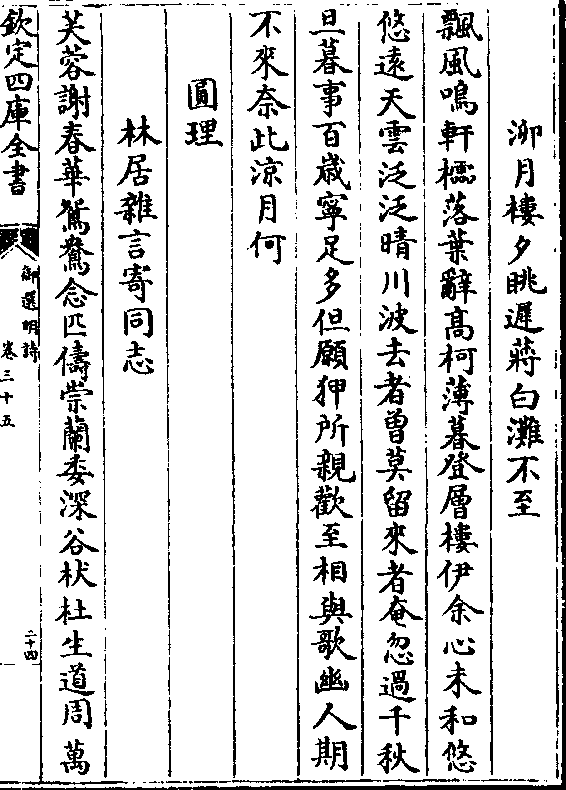 泖月樓夕眺遲蔣白灘不至
飄風鳴軒櫺落葉辭髙柯薄暮登層樓伊余心未和悠
悠遠天雲泛泛晴川波去者曽莫留來者奄忽過千秋
旦暮事百歳寧足多但願狎所親歡至相與歌幽人期
不來奈此涼月何
圓理
林居雜言寄同志
芙蓉謝春華鴛鴦念匹儔崇蘭委深谷杕杜生道周萬
欽定四庫全書
御選明詩
卷三十五
二十四